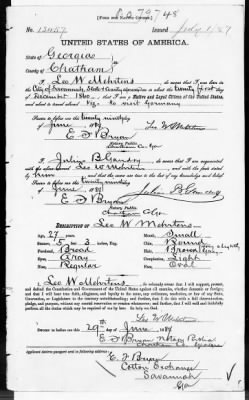 (FORM FOR NATIVE CITIZEN.)
No. 15057 Issued July 1/87
UNITED STATES OF AMERICA.
State of Georgia
County of Chatham
I, Leo W Mehrtens, do swear that I was born in
the City of Savannah, State & County aforesaid on or about the twenty first day
of December 1860; that I am a Native and Loyal Citizen of the United States,
and about to travel abroad viz: to visit Germany
Sworn to before me, this twenty ninth day
of June 1887 Leo W Mehrtens
E F Bryan
Notary Public
Chatham Co. Ga.
I, Julius, do swear that I am acquainted
with the above named Leo W Mehrtens and with the facts above stated
by him, and that the same are true to the best of my knowledge and belief.
Sworn to before me, this twenty ninth day
of June 1887
E F Bryan
Notary Public
Chatham Co Ga
DESCRIPTION OF Leo W Mehrtens
Age, 27 years. Mouth, Small
Stature, 5 feet 3 inches, Eng. Chin, Round
Forehead, Broad Hair, Brown
Eyes, Gray Complexion, Light
Nose, Regular Face, Oval
I, Leo W Mehrtens, do solemnly swear that I will support, protect, and
defend the Constitution and Government of the United States against all enemies, whether domestic or foreign;
and that I will bear true faith, allegiance, and loyalty to the same, any ordinance, resolution, or law of any State,
Convention, or Legislature to the contrary notwithstanding; and further, that I do this with a full determination,
pledge, and purpose, without any mental reservation or evasion whatsoever; and further, that I will well and faithfully
perform all the duties which may be required of me by law: So help me God.
Leo W Mehrtens
Sworn to before me, this 29th day of June 1887
E F Bryan Notary Public
Chatham Co Georgia
Applicant desires passport sent to following address:
E F Bryan
Cotton Exchange
Savannah
Ga